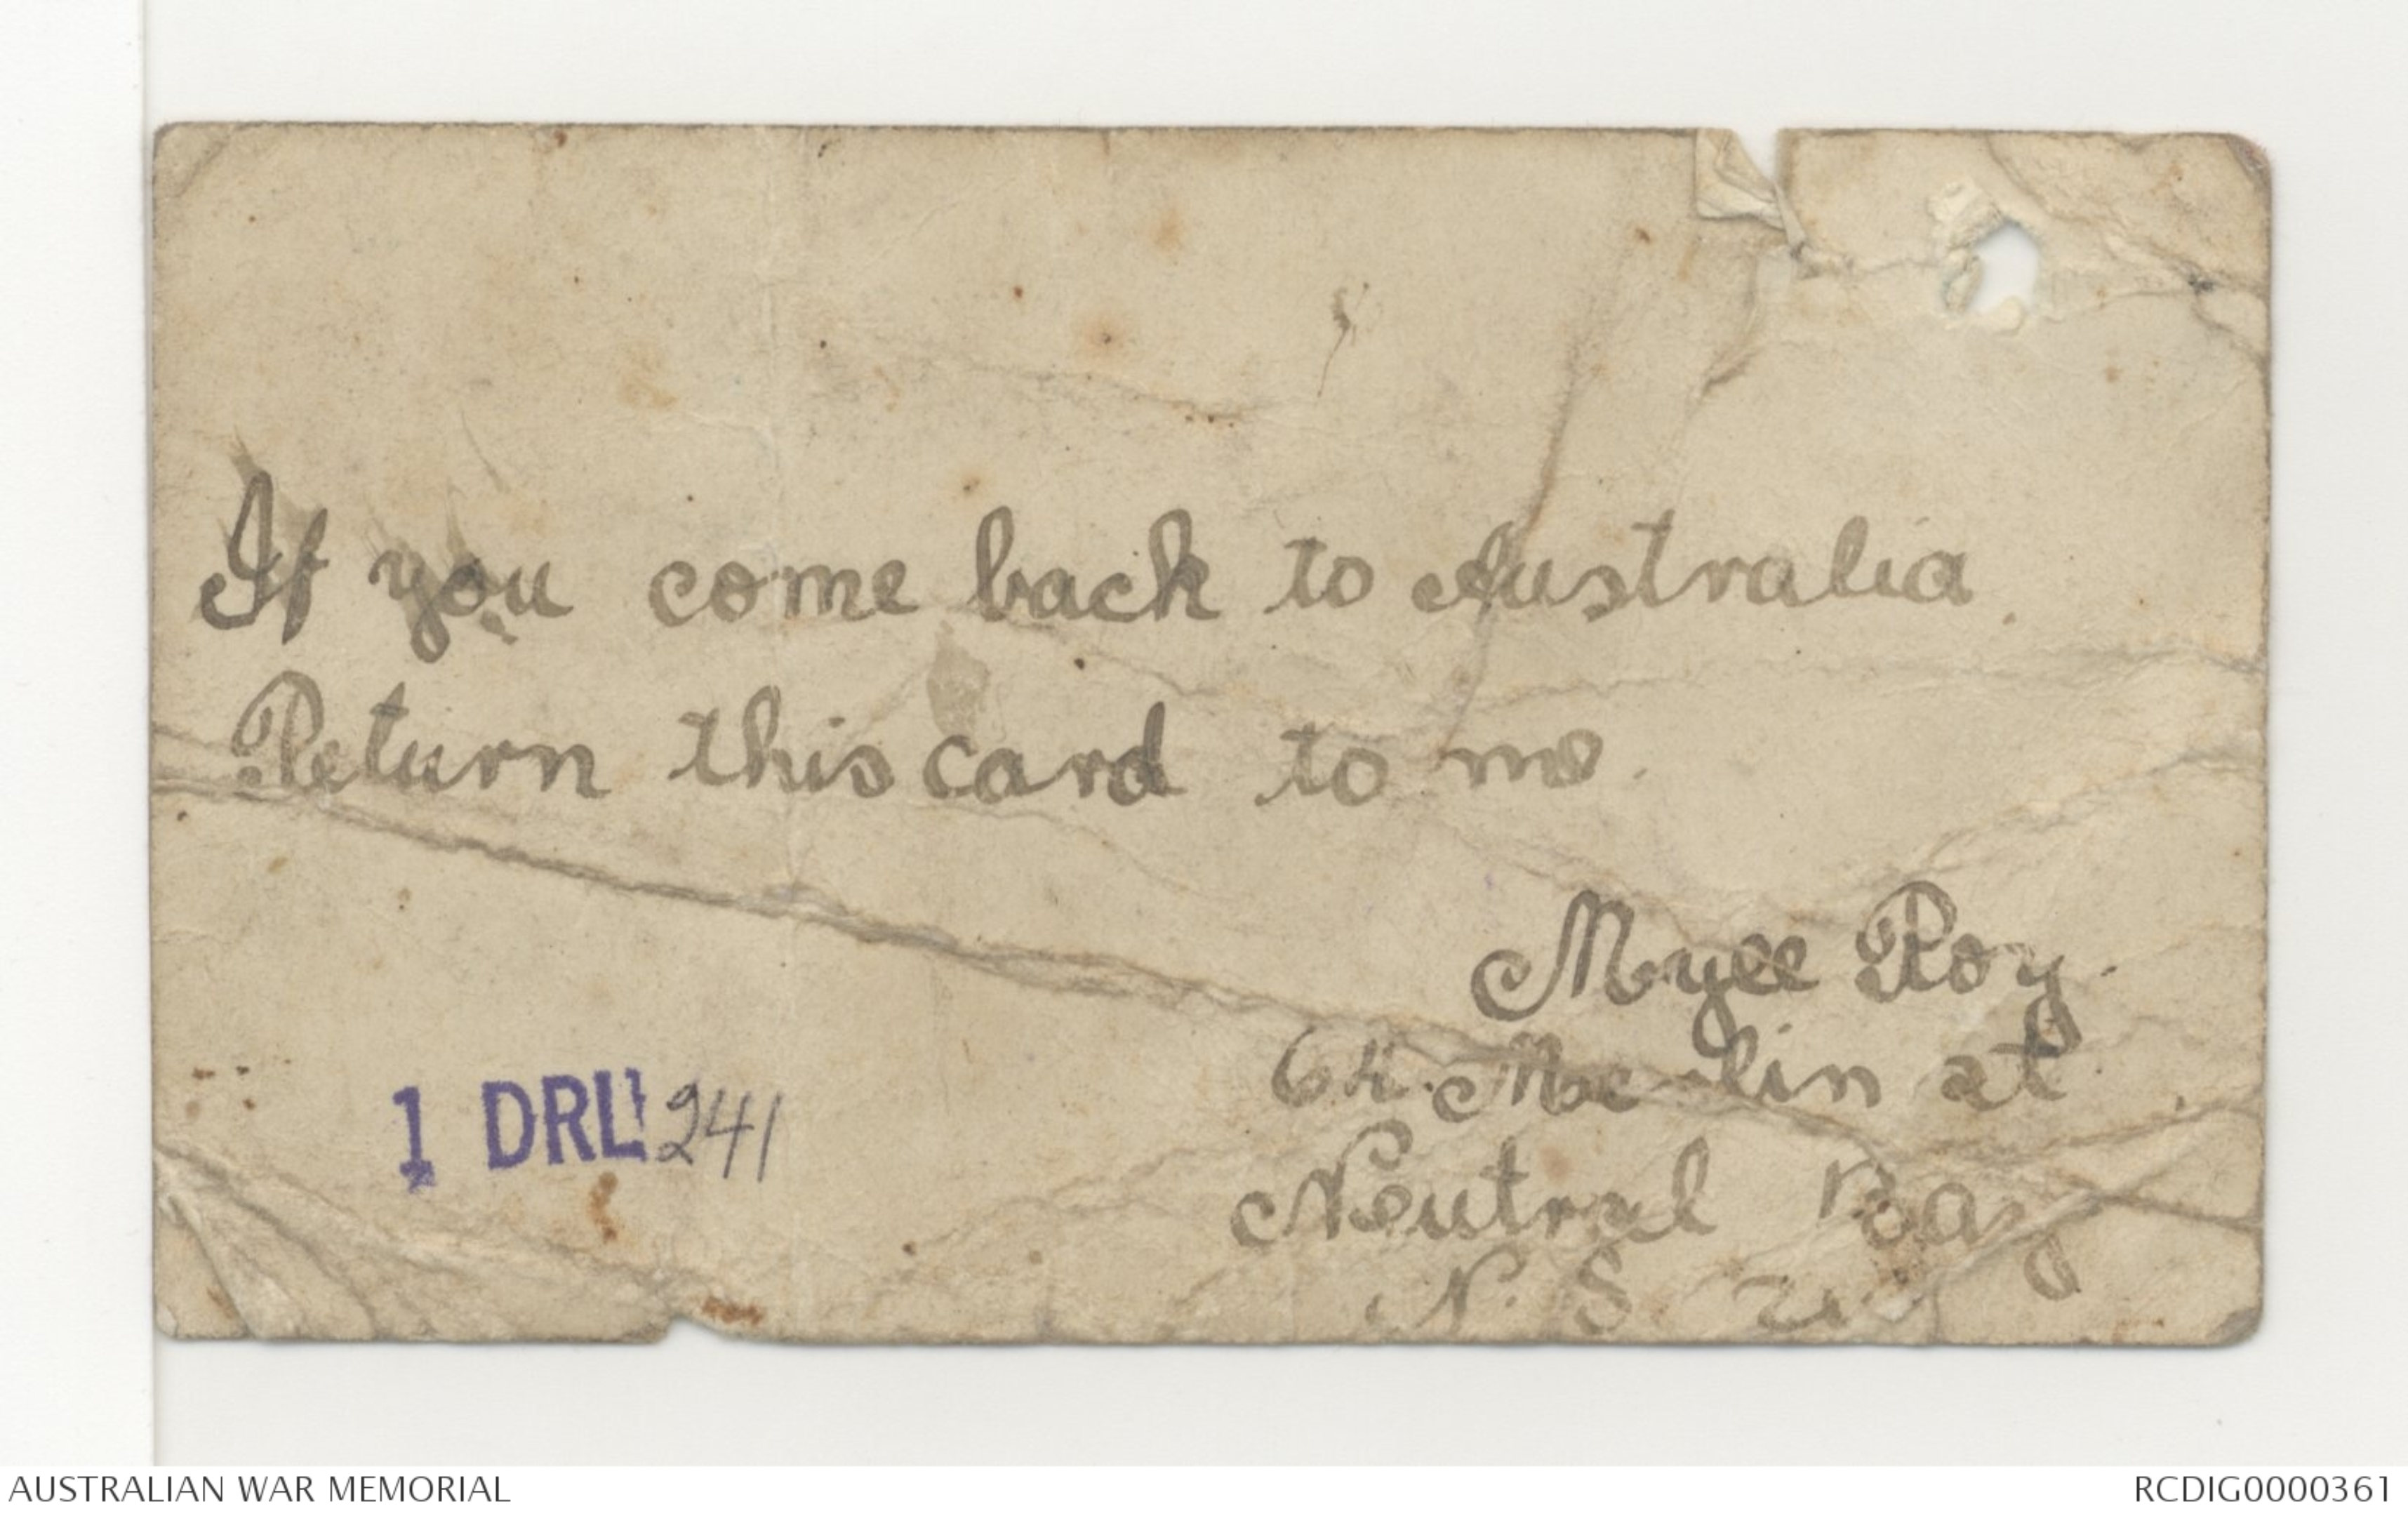 If you come back to Australia
Return this card to me.
Myee Roy.
Neutral Bay
N. S. W
1 DRL 241
AUSTRALIAN WAR MEMORIAL
RCDIG0000361